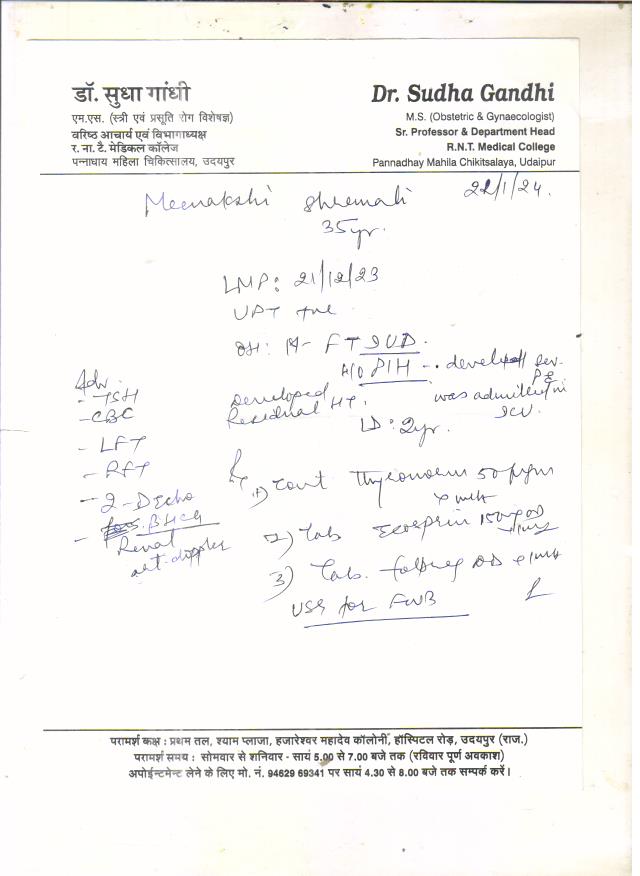 डॉ. सुधा गांधी
एम.एस. (स्त्री एवं प्रसूति रोग विशेषज्ञ)
वरिष्ठ आचार्य एवं विभागाध्यक्ष
र. ना. टै. मेडिकल कॉलेज
पन्नाधाय महिला चिकित्सालय, उदयपुर
Dr. Sudha Gandhi
M.S. (Obstetric & Gynaecologist)
Sr. Professor & Department Head
R.N.T. Medical College
Pannadhay Mahila Chikitsalaya, Udaipur
22/1/24.
Meenakshi Shremali
35yr.
LMP: 21/12/23
UPT +ve
OH: FT IUD.
H/O PIH - develop sev. PE
was admitted in ICU.
Developed
Residual HT.
LD: 2yr.
Adv.
- TSH
- CBC
- LFT
- RFT
- 2-D Echo
- BHCG
Renal
art. doppler
1) Cont Thyronorm 50
2) Tab Ecosprin 150 OD
3) Tab. OD
USG for FWB
परामर्श कक्ष : प्रथम तल, श्याम प्लाजा, हजारेश्वर महादेव कॉलोनी, हॉस्पिटल रोड़, उदयपुर (राज.)
परामर्श समय : सोमवार से शनिवार - सायं 5.00 से 7.00 बजे तक (रविवार पूर्ण अवकाश)
अपोईन्टमेन्ट लेने के लिए मो. नं. 94629 69341 पर सायं 4.30 से 8.00 बजे तक सम्पर्क करें।